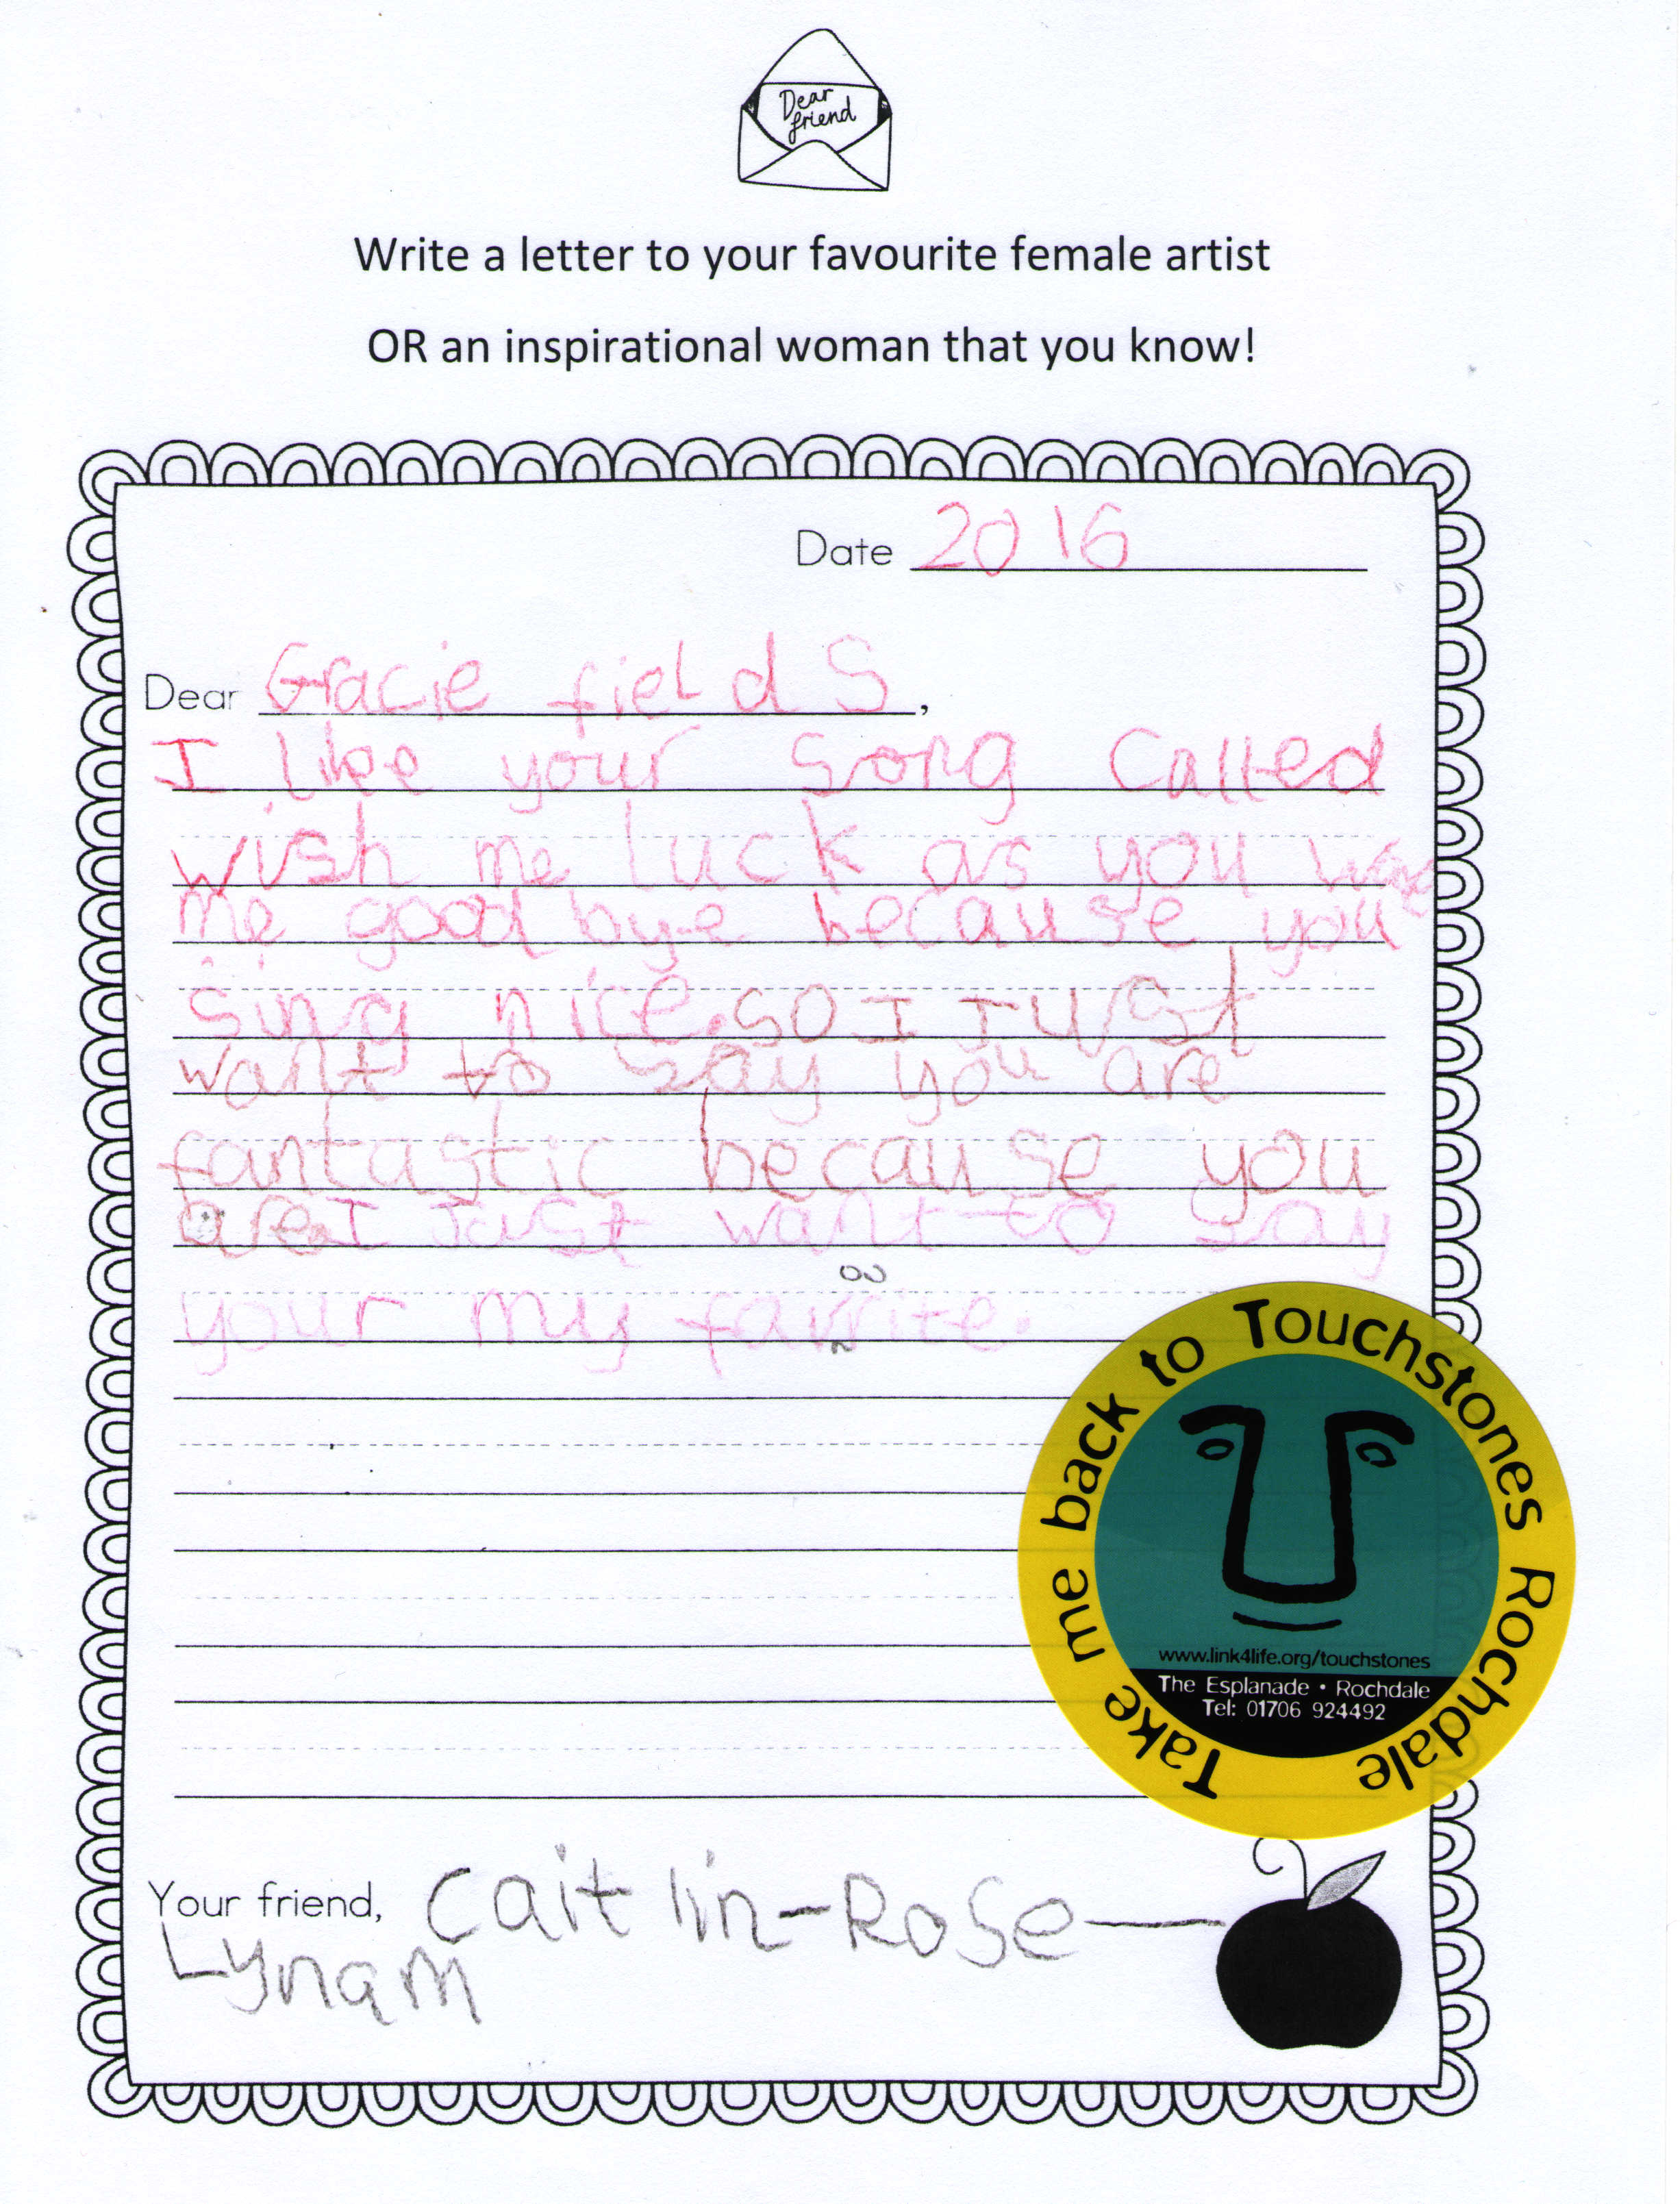 Dear
friend
Write a letter to your favourite female artist
OR an inspirational woman that you know!
Date 2016
Dear Gracie fields,
I like your song called
wish me luck as you wave
me good bye because you
sing nice. so I Just
want to say you are
fantastic because you
are. I Just want to say
your my favrite.
Take me back to Touchstones Rochdale
www.link4life.org/touchstones
The Esplanade • Rochdale
Tel: 01706 924492
Your friend, Caitlin-Rose
Lynam